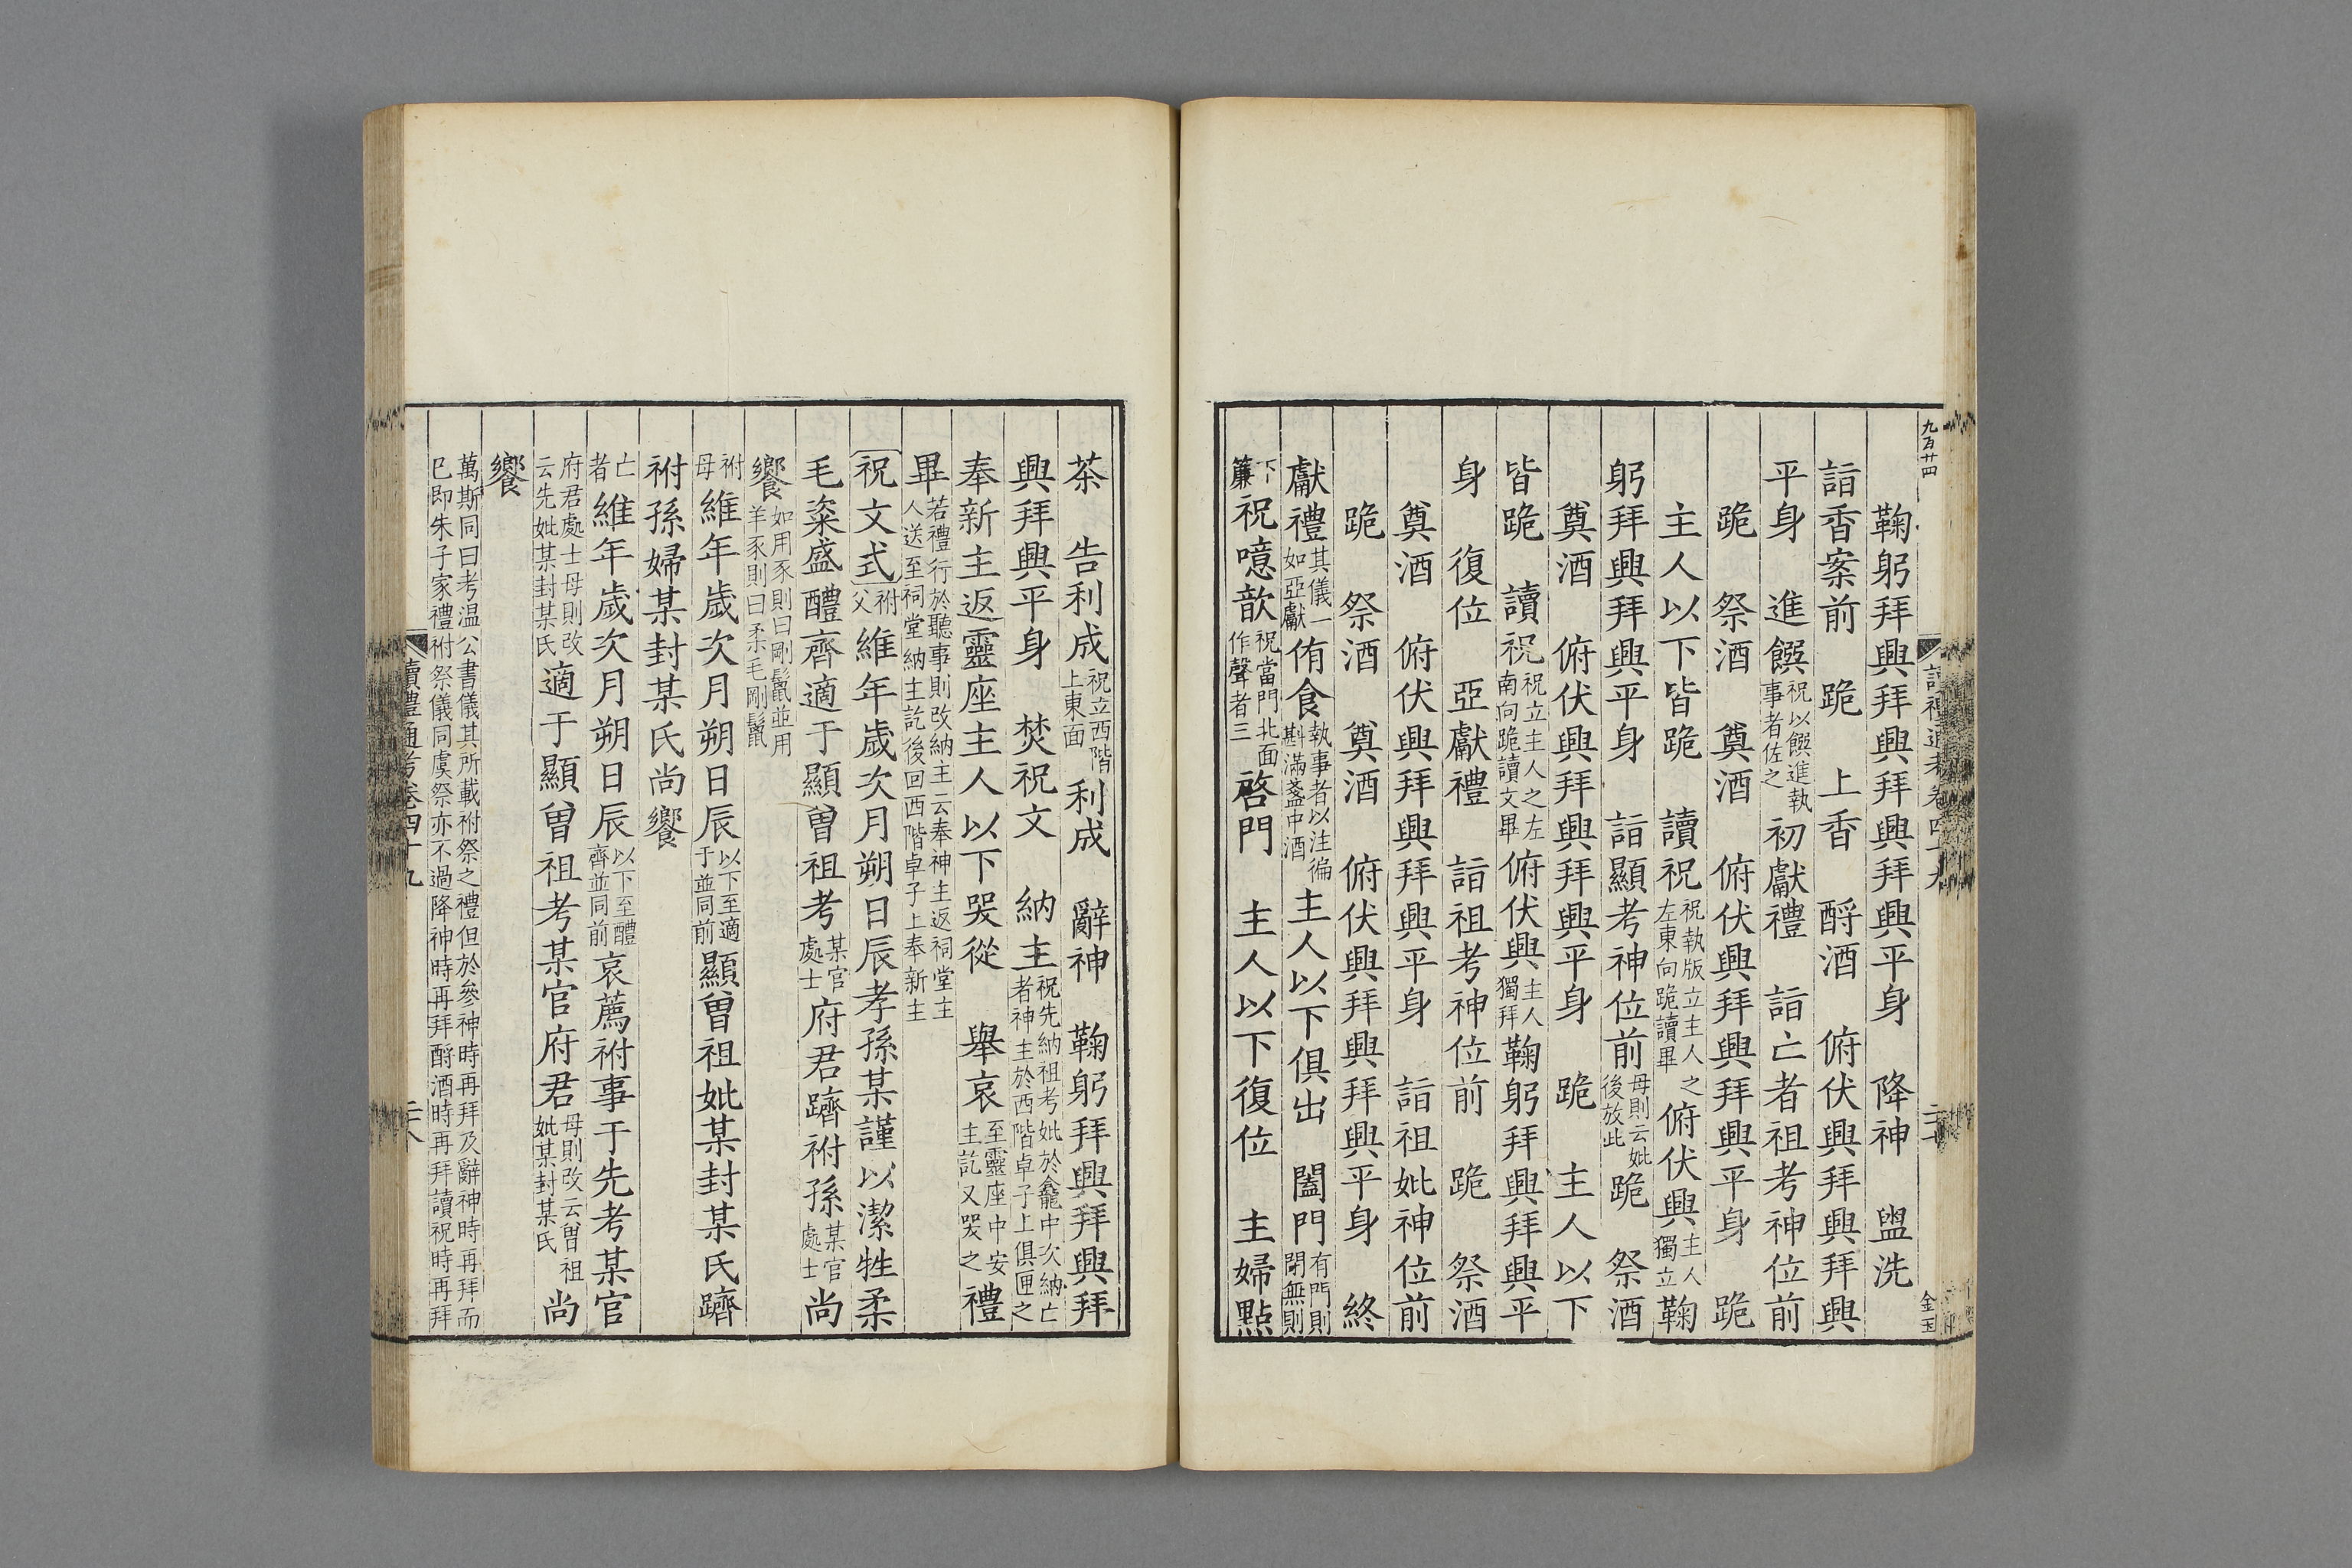 九百廿四
讀禮通考卷四十九
二十七
金玉
鞠躬拜興拜興拜興拜興平身　降神　盥洗
詣香案前　跪　上香　酹酒　俯伏興拜興拜興
平身　進饌祝以饌進執事者佐之初獻禮　詣亡者祖考神位前
跪　祭酒　奠酒　俯伏興拜興拜興平身　跪
主人以下皆跪　讀祝祝執版立主人之左東向跪讀畢俯伏興主人獨立鞠
躬拜興拜興平身　詣顯考神位前母則云妣後放此跪　祭酒
奠酒　俯伏興拜興拜興平身　跪　主人以下
皆跪　讀祝祝立主人之左南向跪讀文畢俯伏興主人獨拜鞠躬拜興拜興平
身　復位　亞獻禮　詣祖考神位前　跪　祭酒
奠酒　俯伏興拜興拜興平身　詣祖妣神位前
跪　祭酒　奠酒　俯伏興拜興拜興平身　終
獻禮其儀一如亞獻侑食執事者以注徧斟滿盞中酒主人以下俱出　闔門有門則閉無則
下簾祝噫歆祝當門北面作聲者三啓門　主人以下復位　主婦點
茶　告利成祝立西階上東面利成　辭神　鞠躬拜興拜興拜
興拜興平身　焚祝文　納主祝先納祖考妣於龕中次納亡者神主於西階卓子上俱匣之
奉新主返靈座主人以下哭從　舉哀至靈座中安主訖又哭之禮
畢若禮行於聽事則改納主云奉神主返祠堂主人送至祠堂納主訖後回西階卓子上奉新主
祝文式祔父維年歲次月朔日辰孝孫某謹以潔牲柔
毛粢盛醴齊適于顯曾祖考某官處士府君躋祔孫某官處士尚
饗如用豕則曰剛鬣並用羊豕則曰柔毛剛鬣
祔母維年歲次月朔日辰以下至適于並同前顯曾祖妣某封某氏躋
祔孫婦某封某氏尚饗
亡者維年歲次月朔日辰以下至醴齊並同前哀薦祔事于先考某官
府君處士母則改云先妣某封某氏適于顯曾祖考某官府君母則改云曾祖妣某封某氏尚
饗
萬斯同曰考温公書儀其所載祔祭之禮但於參神時再拜及辭神時再拜而
已即朱子家禮祔祭儀同虞祭亦不過降神時再拜酹酒時再拜讀祝時再拜
讀禮通考卷四十九
二十八